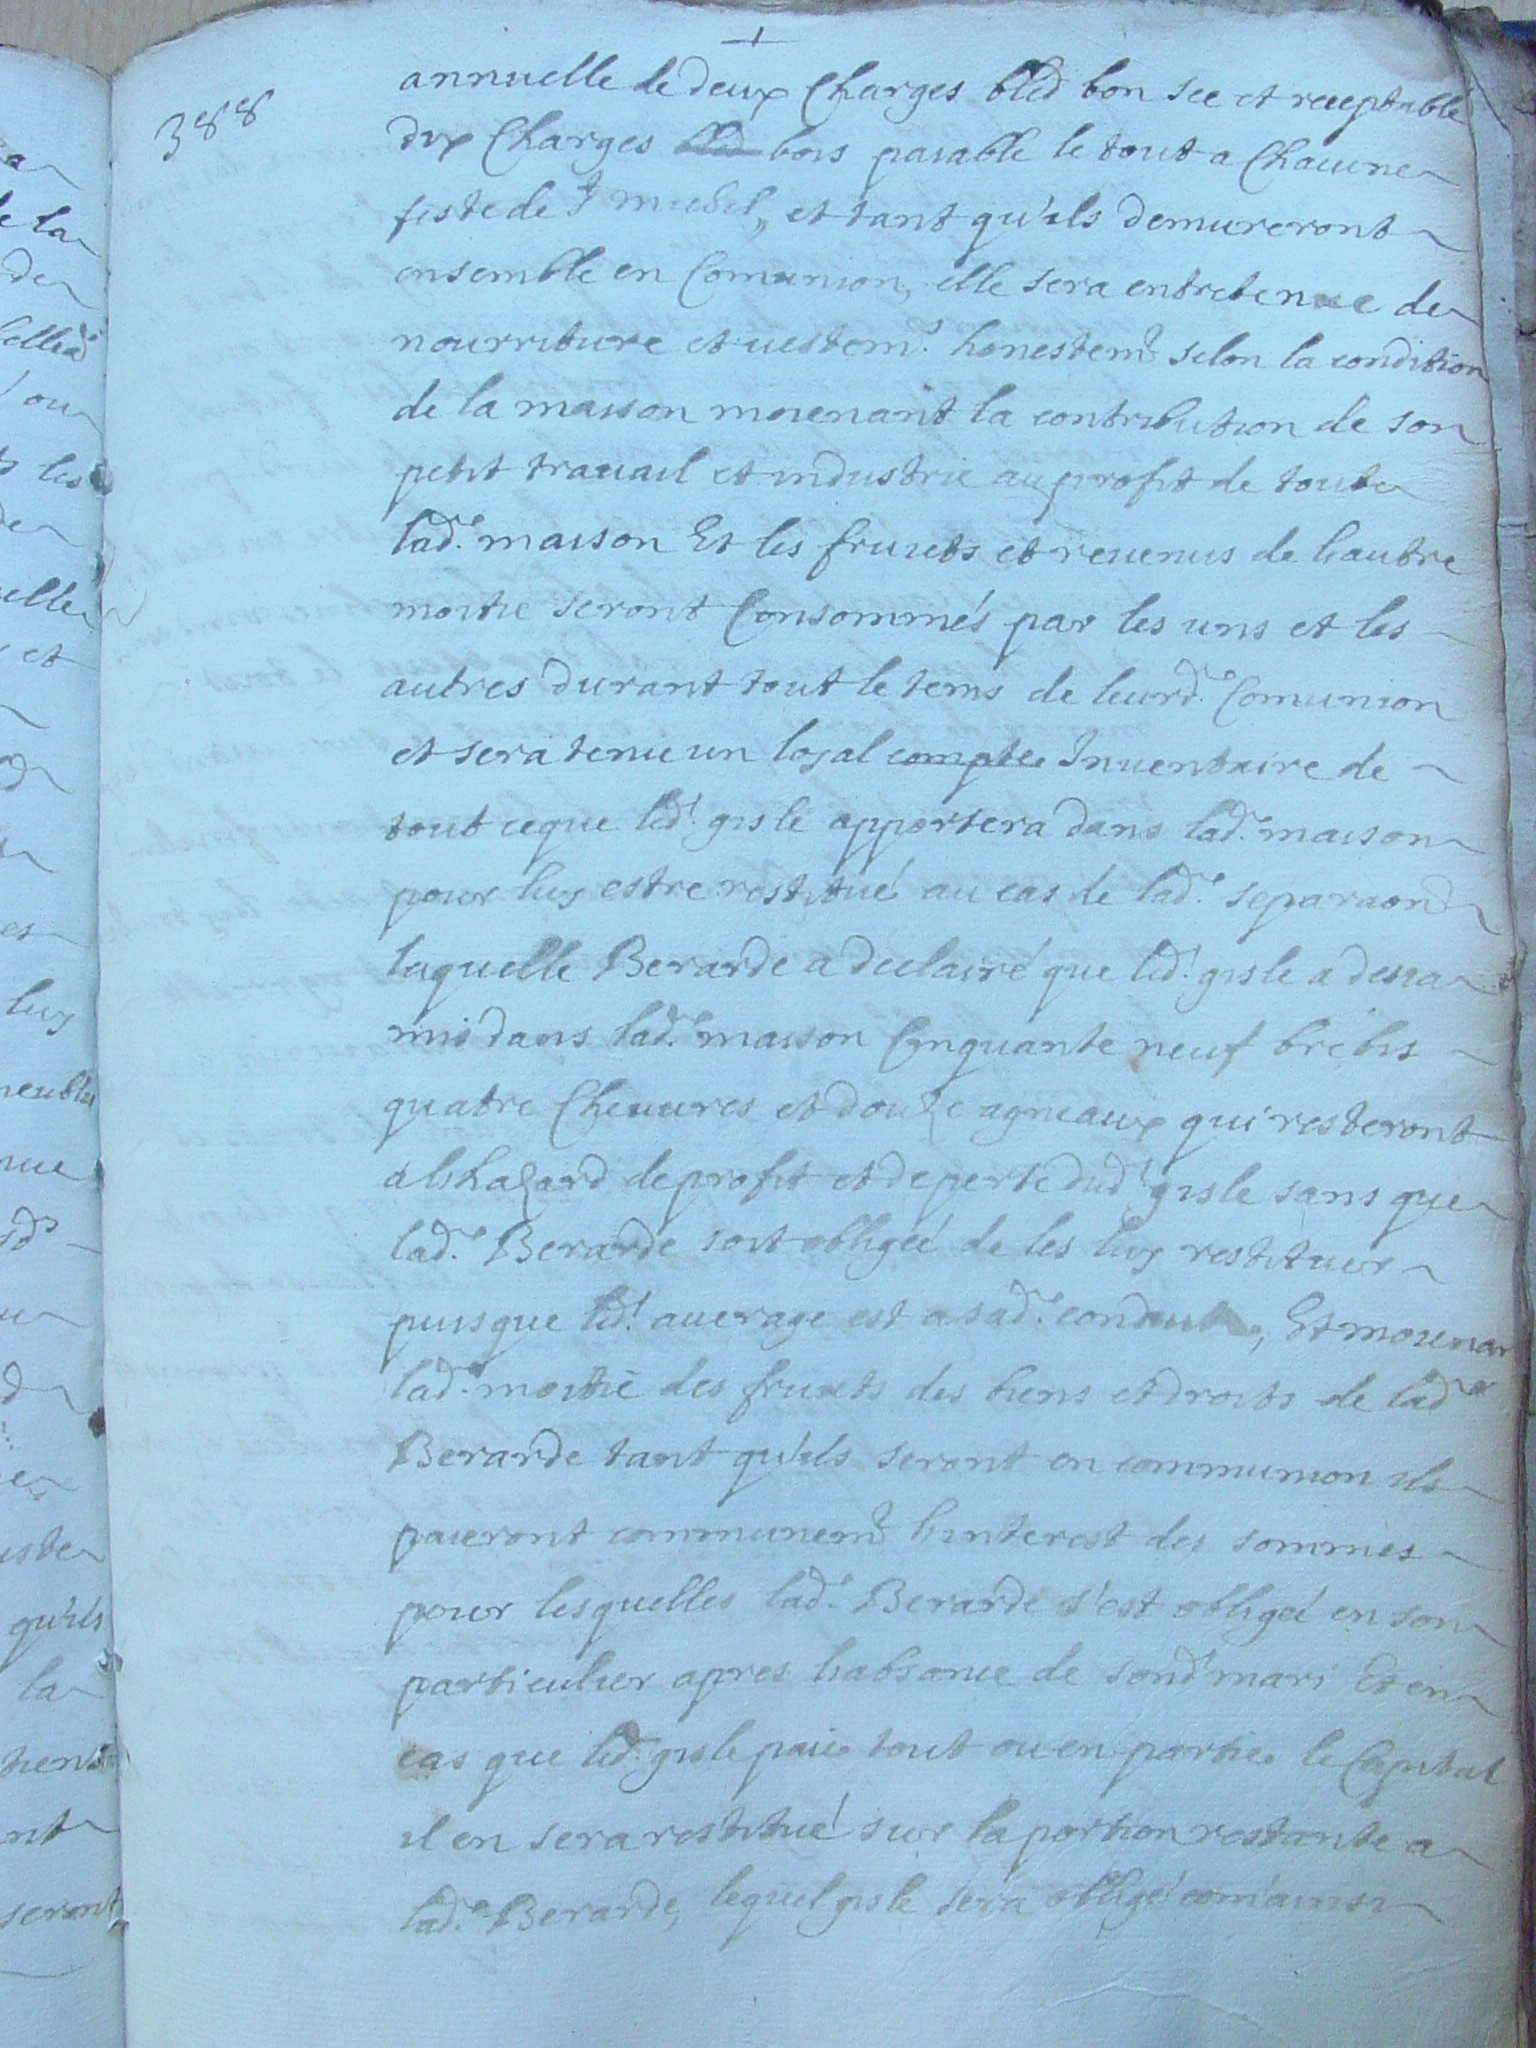 388
annuelle de deux Charges bléd bon sec et receptable
dix Charges bléd bois paiable le tout a Chacune
feste de St michel, et tant qu'ils demureront
ensemble en Comunion, elle sera entretenue de
nourriture et vestemt. honestemt selon la condition
de la maison moienant la contribution de son
petit travail et industrie au profit de toute
lade. maison Et les fruicts et revenus de l'autre
moitie seront Consommés par les uns et les
autres durant tout le tems de leurde. Comunion
et sera tenu un loyal compte Inventaire de
tout ceque ledt. gisle apportera dans lade. maison
pour luy estre restitué au cas de lade. separaon
laquelle Berarde a declairé que ledt. gisle a desia
mis dans lade. maison Cinquante neuf brebis
quatre Chevures et douze agneaux qui resteront
a l'hazard de profit et de perte dudt. gisle sans que
lade. Berarde soit obligeé de les luy restituer
puis que ledt. average est a sade. conduite, Et moienant
lade. moitié des fruicts des biens et droits de lade
Berarde tant qu'ils seront en communion ils
paieront communemt l'interest des sommes
pour lesquelles lade. Berarde s'est obligeé en son
particulier apres l'absance de sondt mari Et en
cas que ledt. gisle paie tout ou en partie le Capital
il en sera restitué sur la portion restante a
lade. Berarde, lequel gisle sera obligé com'ainsi
a
de la
de
ou
les
de
elle
et
es
luy
meubles
nue
iste
qu'ils
la
tiens
nt
seront